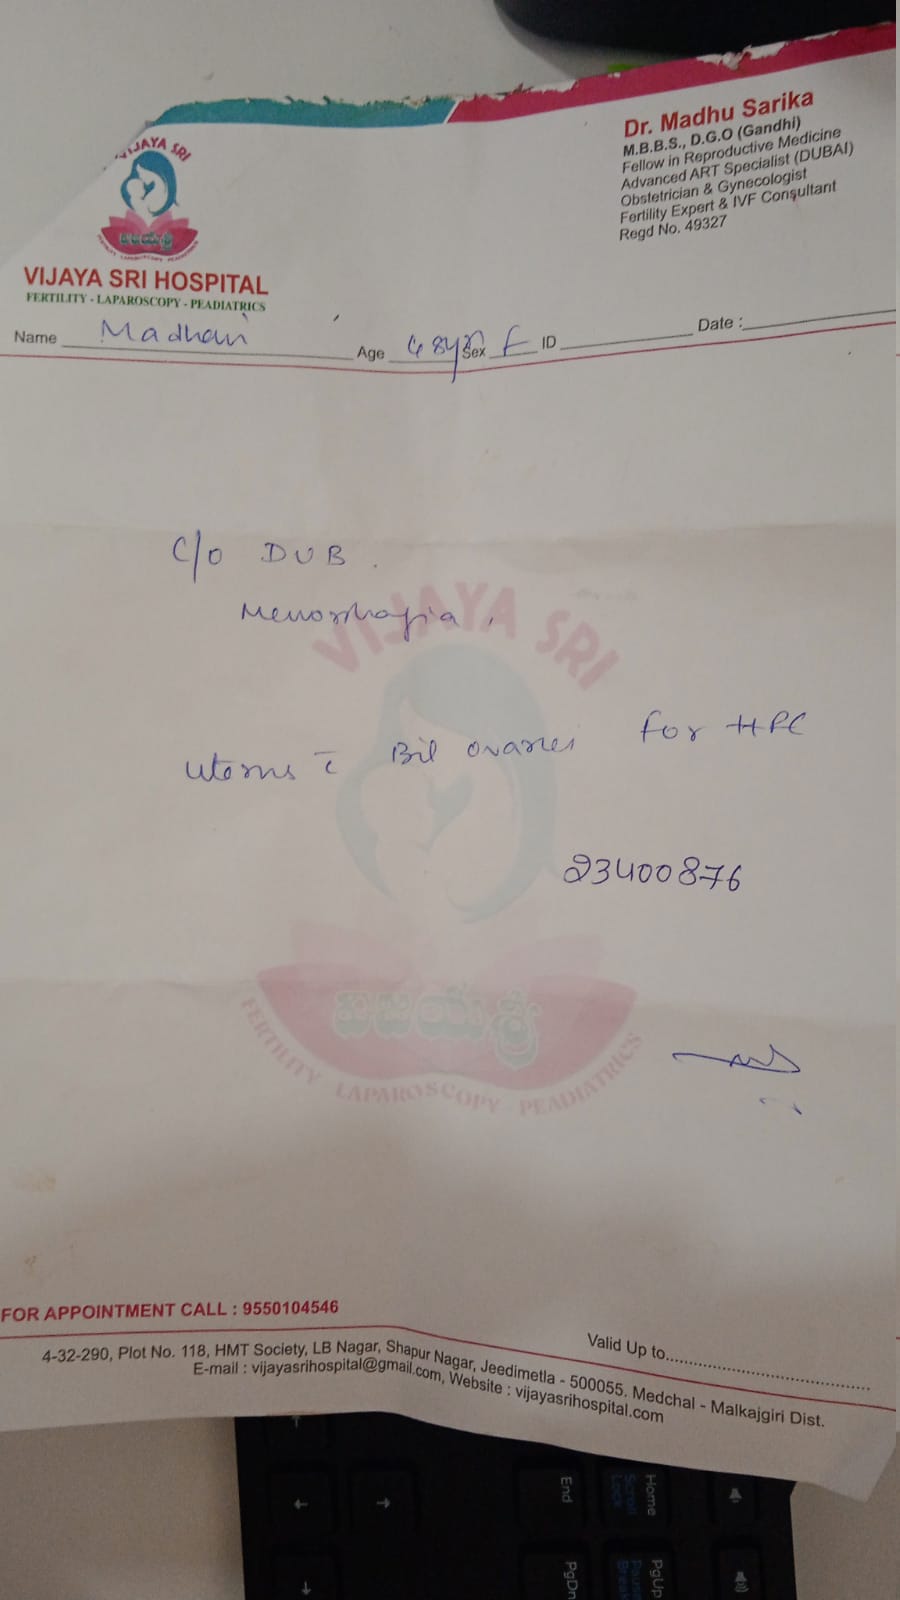 VIJAYA SRI
విజయశ్రీ
FERTILITY - LAPAROSCOPY - PEADIATRICS
VIJAYA SRI HOSPITAL
FERTILITY - LAPAROSCOPY - PEADIATRICS
Dr. Madhu Sarika
M.B.B.S., D.G.O (Gandhi)
Fellow in Reproductive Medicine
Advanced ART Specialist (DUBAI)
Obstetrician & Gynecologist
Fertility Expert & IVF Consultant
Regd No. 49327
Name Madhavi Age 48yrs Sex F ID Date :
C/o DUB.
Menorrhagia,
uterus c̄ Bil ovaries for HPE
23400876
VIJAYA SRI
విజయశ్రీ
FERTILITY LAPAROSCOPY - PEADIATRICS
FOR APPOINTMENT CALL : 9550104546
Valid Up to..........................................
4-32-290, Plot No. 118, HMT Society, LB Nagar, Shapur Nagar, Jeedimetla - 500055. Medchal - Malkajgiri Dist.
E-mail : vijayasrihospital@gmail.com, Website : vijayasrihospital.com
End
Home
Scroll
Lock
PgDn
PgUp
Pause
Break